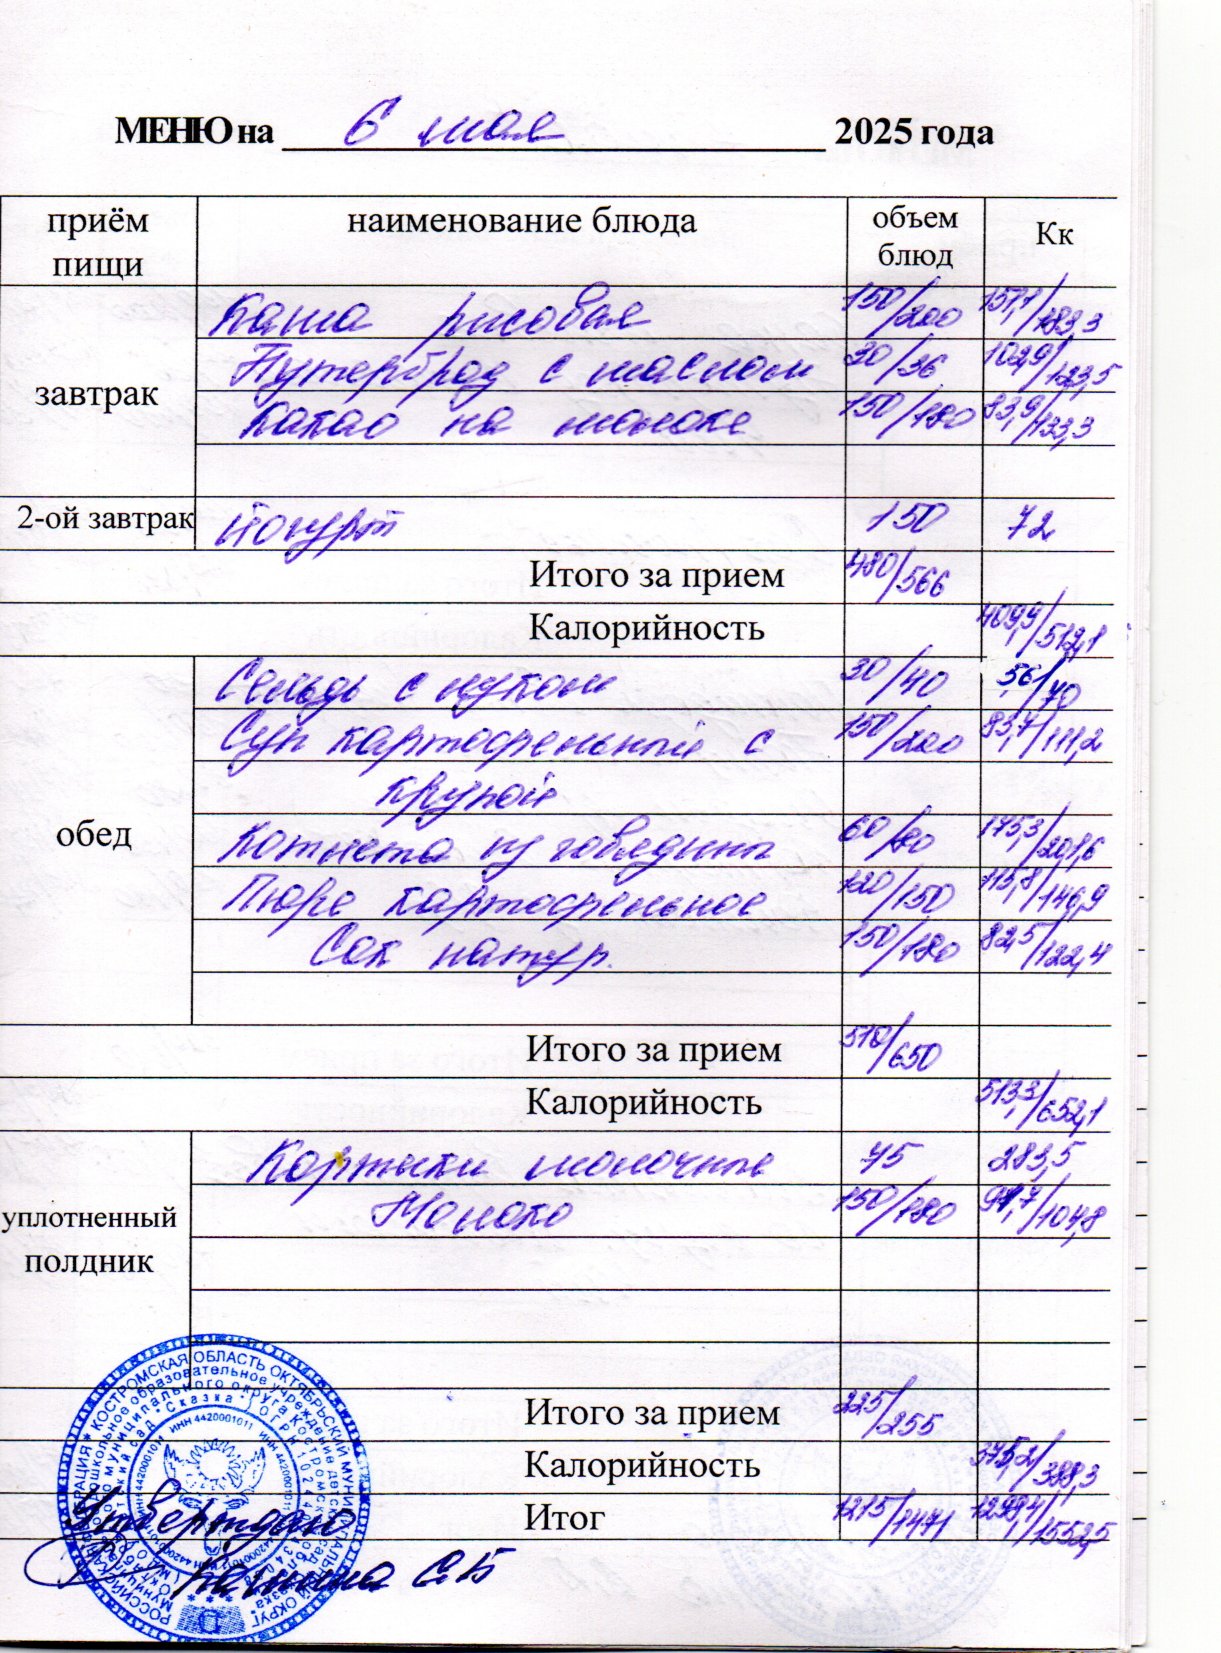 МЕНЮ на 6 мая 2025 года
приём пищи наименование блюда объем блюд Кк
завтрак
Каша рисовая 150/200 157,1/183,3
Бутерброд с маслом 30/36 102,9/123,5
Какао на молоке 150/180 83,9/133,3
2-ой завтрак Йогурт 150 72
Итого за прием 480/566
Калорийность 409,9/512,1
обед
Сельдь с луком 30/40 56/70
Суп картофельный с 150/200 83,7/111,2
крупой
Котлета из говядины 60/80 175,3/201,6
Пюре картофельное 120/150 115,8/146,9
Сок натур. 150/180 82,5/122,4
Итого за прием 510/650
Калорийность 513,3/652,1
уплотненный полдник
Коржики молочные 75 283,5
Молоко 150/180 91,7/104,8
Итого за прием 225/255
Калорийность 375,2/388,3
Итог 1215/1471 1298,4/1552,5
Утверждаю
С.Б
КОСТРОМСКАЯ ОБЛАСТЬ ОКТЯБРЬСКИЙ
ИНН 4420001011